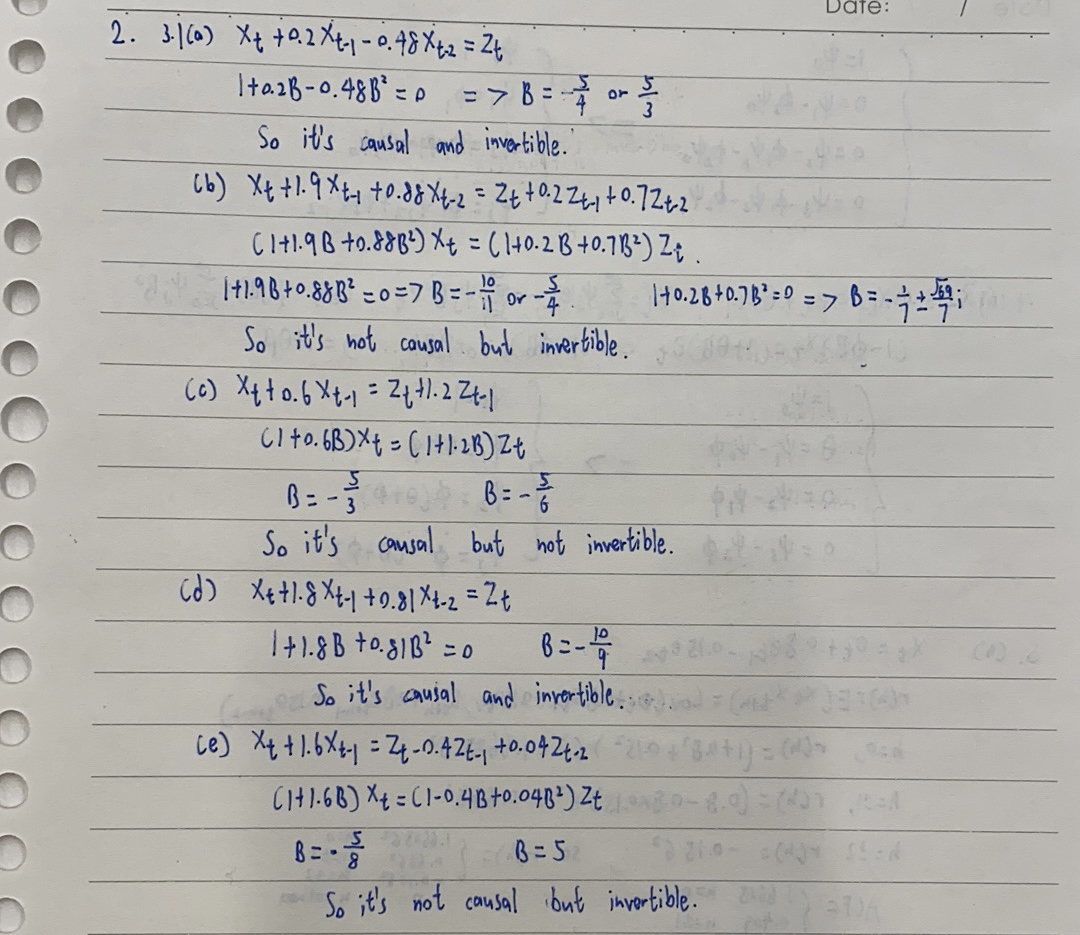 Date: /
2. 3.1(a) Xt + 0.2Xt-1 - 0.48Xt-2 = Zt
1+0.2B-0.48B² = 0 => B = -5/4 or 5/3
So it's causal and invertible.
(b) Xt + 1.9Xt-1 + 0.88Xt-2 = Zt + 0.2Zt-1 + 0.7Zt-2
(1+1.9B+0.88B²) Xt = (1+0.2B+0.7B²) Zt.
1+1.9B+0.88B² = 0 => B = -10/11 or -5/4. 1+0.2B+0.7B² = 0 => B = -1/7 ± √69/7 i
So it's not causal but invertible.
(c) Xt + 0.6Xt-1 = Zt + 1.2Zt-1
(1+0.6B)Xt = (1+1.2B)Zt
B = -5/3 B = -5/6
So it's causal but not invertible.
(d) Xt + 1.8Xt-1 + 0.81Xt-2 = Zt
1+1.8B+0.81B² = 0 B = -10/9
So it's causal and invertible.
(e) Xt + 1.6Xt-1 = Zt - 0.4Zt-1 + 0.04Zt-2
(1+1.6B) Xt = (1-0.4B+0.04B²) Zt
B = -5/8 B = 5
So it's not causal but invertible.